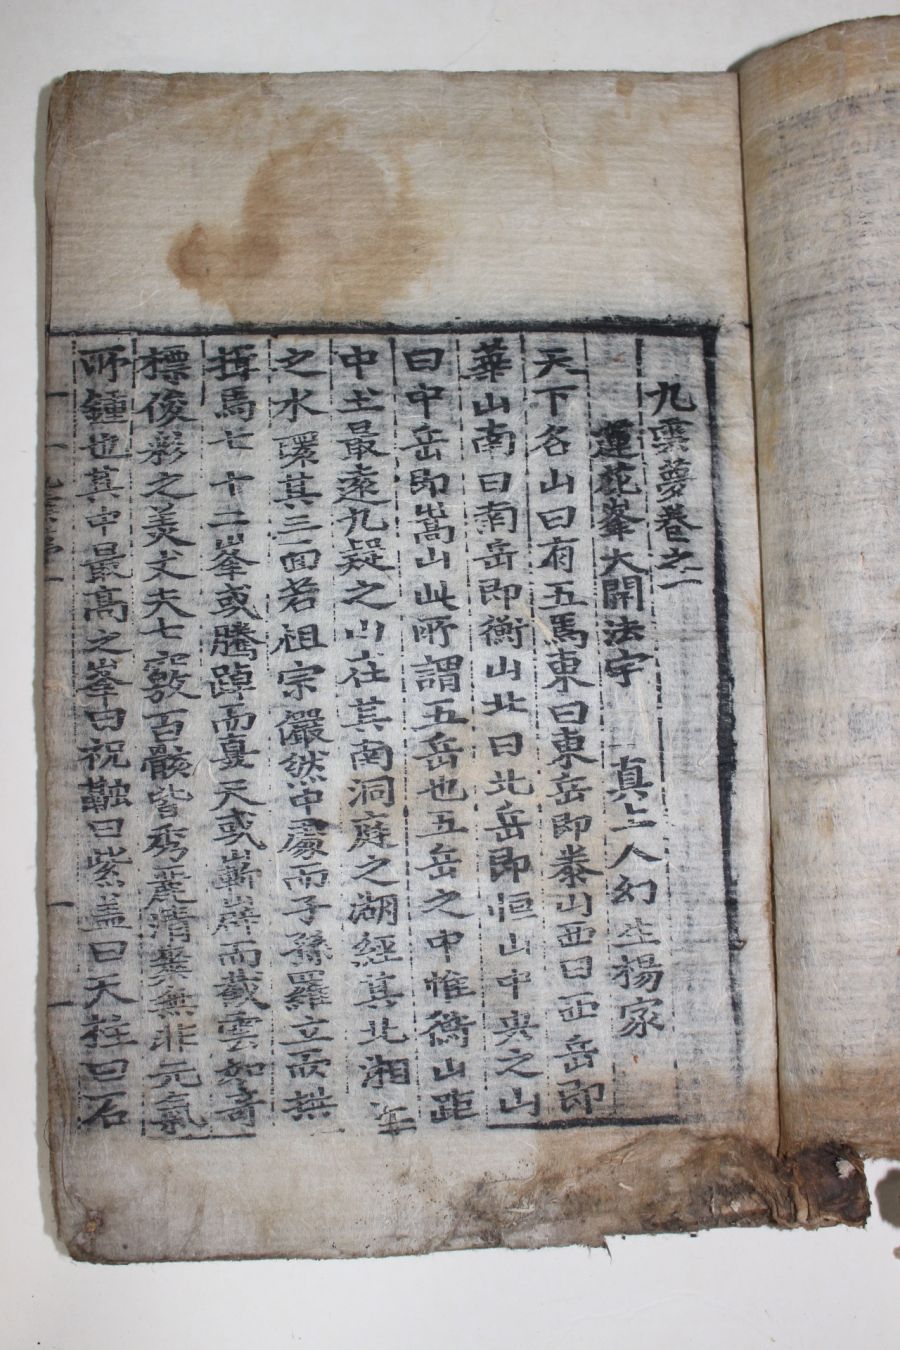 九雲夢卷之一
蓮花峯大開法宇 真上人幻生楊家
天下名山曰有五焉東曰東岳即泰山西曰西岳即
華山南曰南岳即衡山北曰北岳即恒山中央之山
曰中岳即嵩山此所謂五岳也五岳之中惟衡山距
中土最遠九疑之山在其南洞庭之湖經其北湘江
之水環其三面若祖宗儼然中處而子孫羅立而拱
揖焉七十二峯或騰踔而戛天或嶄嶭而截雲如奇
標俊彩之美丈夫七竅百骸皆秀麗清爽無非元氣
所鍾也其中最高之峯曰祝融曰紫盖曰天柱曰石